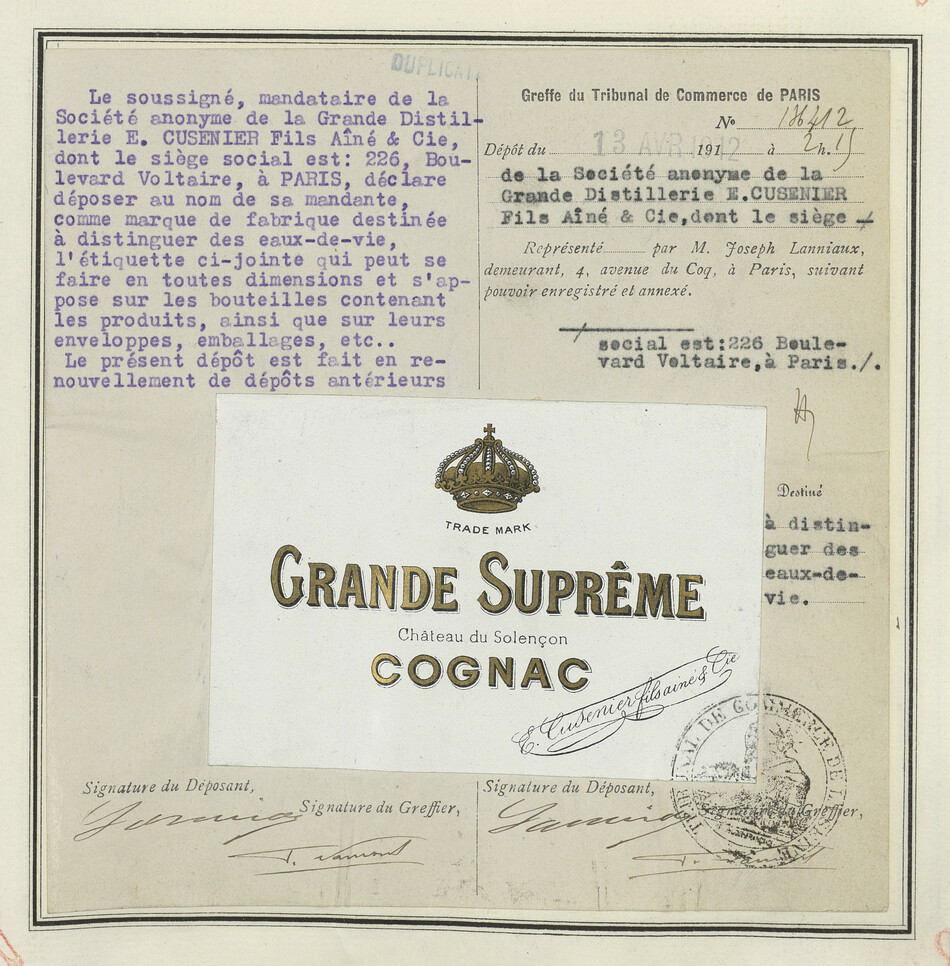 DUPLICATA
Le soussigné, mandataire de la
Société anonyme de la Grande Distil-
lerie E. CUSENIER Fils Aîné & Cie,
dont le siège social est: 226, Bou-
levard Voltaire, à PARIS, déclare
déposer au nom de sa mandante,
comme marque de fabrique destinée
à distinguer des eaux-de-vie,
l'étiquette ci-jointe qui peut se
faire en toutes dimensions et s'ap-
pose sur les bouteilles contenant
les produits, ainsi que sur leurs
enveloppes, emballages, etc..
Le présent dépôt est fait en re-
nouvellement de dépôts antérieurs
Greffe du Tribunal de Commerce de PARIS
No 136412
Dépôt du 13 AVR 1912 191 à 2h. 15
de la Société anonyme de la
Grande Distillerie E.CUSENIER
Fils Aîné & Cie,dont le siège
Représenté par M. Joseph Lanniaux,
demeurant, 4, avenue du Coq, à Paris, suivant
pouvoir enregistré et annexé.
social est:226 Boule-
vard Voltaire,à Paris./.
Destiné
à distin-
guer des
eaux-de-
vie.
TRADE MARK
GRANDE SUPRÊME
Château du Solençon
COGNAC
E. Cusenier fils ainé & Cie
TRIBUNAL DE COMMERCE DE LA SEINE
Signature du Déposant,
Signature du Greffier,
Signature du Déposant,
Signature du Greffier,